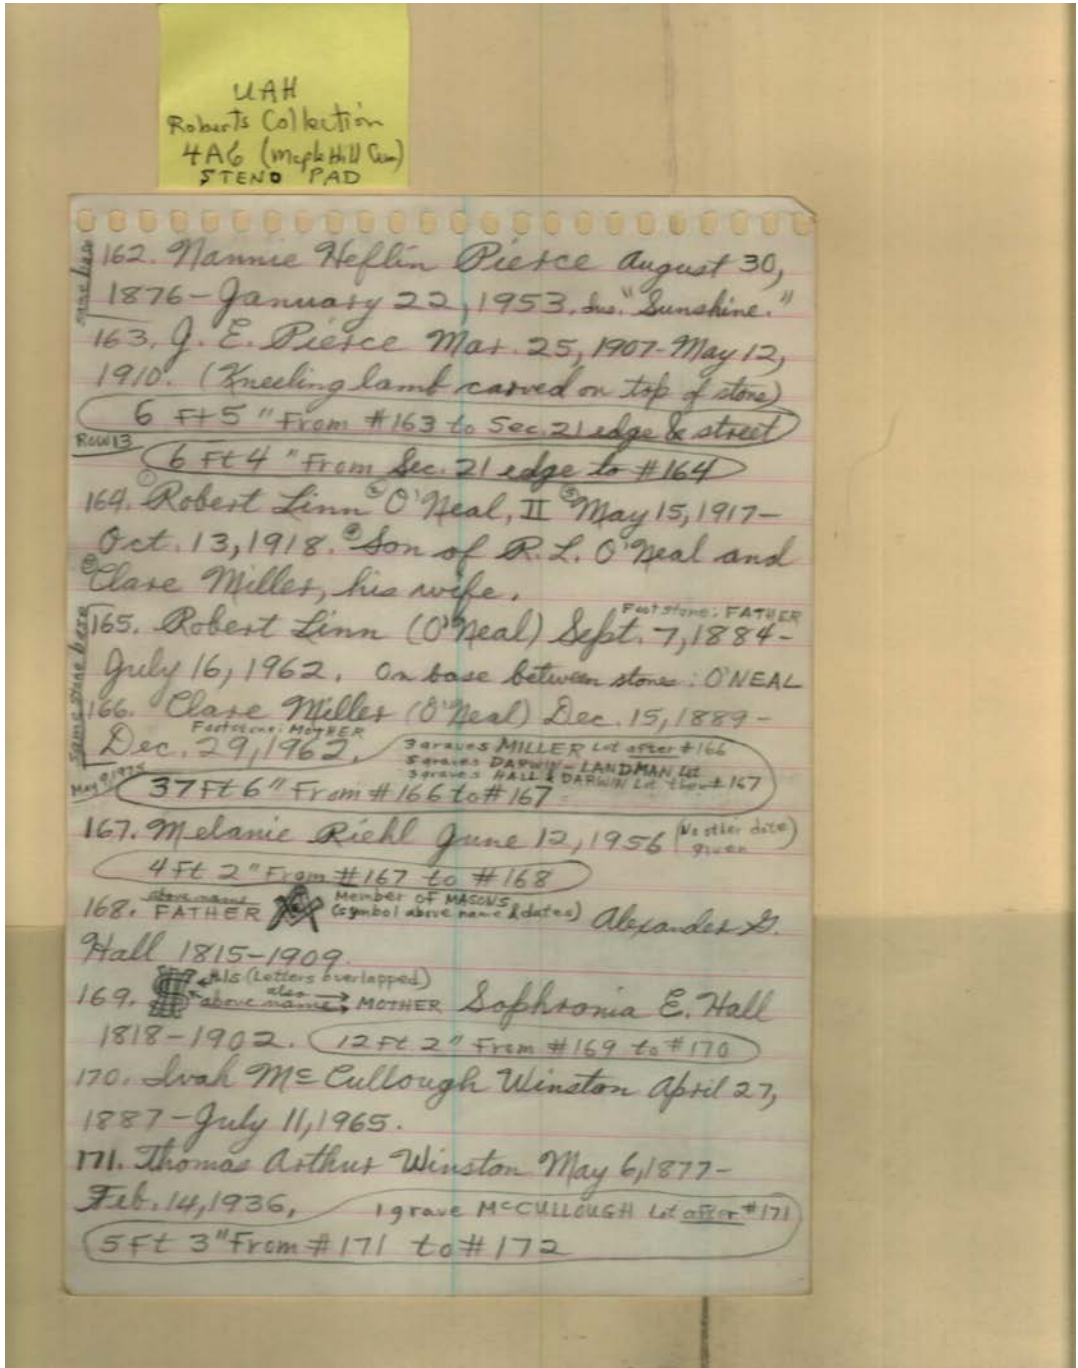 UAH
Roberts Collection
4A6 (Maple Hill Cem)
STENO PAD
same base
162. Nannie Heflin Pierce August 30,
1876-January 22, 1953. Ins. "Sunshine."
163. J. E. Pierce Mar. 25, 1907-May 12,
1910. (Kneeling lamb carved on top of stone)
6 Ft 5" From #163 to Sec. 21 edge & street
Row 13
6 Ft 4" From Sec. 21 edge to #164
164. Robert Linn O'Neal, II May 15, 1917-
Oct. 13, 1918. Son of R. L. O'Neal and
Clare Miller, his wife.
same stone base
Footstone: FATHER
165. Robert Linn (O'Neal) Sept. 7, 1884-
July 16, 1962. On base between stones: O'NEAL
166. Clare Miller (O'Neal) Dec. 15, 1889-
Footstone: MOTHER
Dec. 29, 1962.
3 graves MILLER Lot after #166
5 graves DARWIN-LANDMAN Lot
3 graves HALL & DARWIN Lot then #167
May 9, 1975
37 Ft 6" From #166 to #167
167. Melanie Riehl June 12, 1956 (No other date given)
4 Ft 2" From #167 to #168
168. above name FATHER Member of MASONS (symbol above name & dates) Alexander G.
Hall 1815-1909.
169. (Letters overlapped) also above name: MOTHER Sophronia E. Hall
1818-1902. 12 Ft 2" From #169 to #170
170. Ivah McCullough Winston April 27,
1887-July 11, 1965.
171. Thomas Arthur Winston May 6, 1877-
Feb. 14, 1936. 1 grave McCULLOUGH Lot after #171
5 Ft 3" From #171 to #172